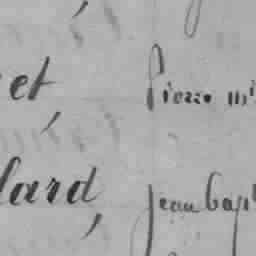 et, Pierre mi
lard, jean bapt